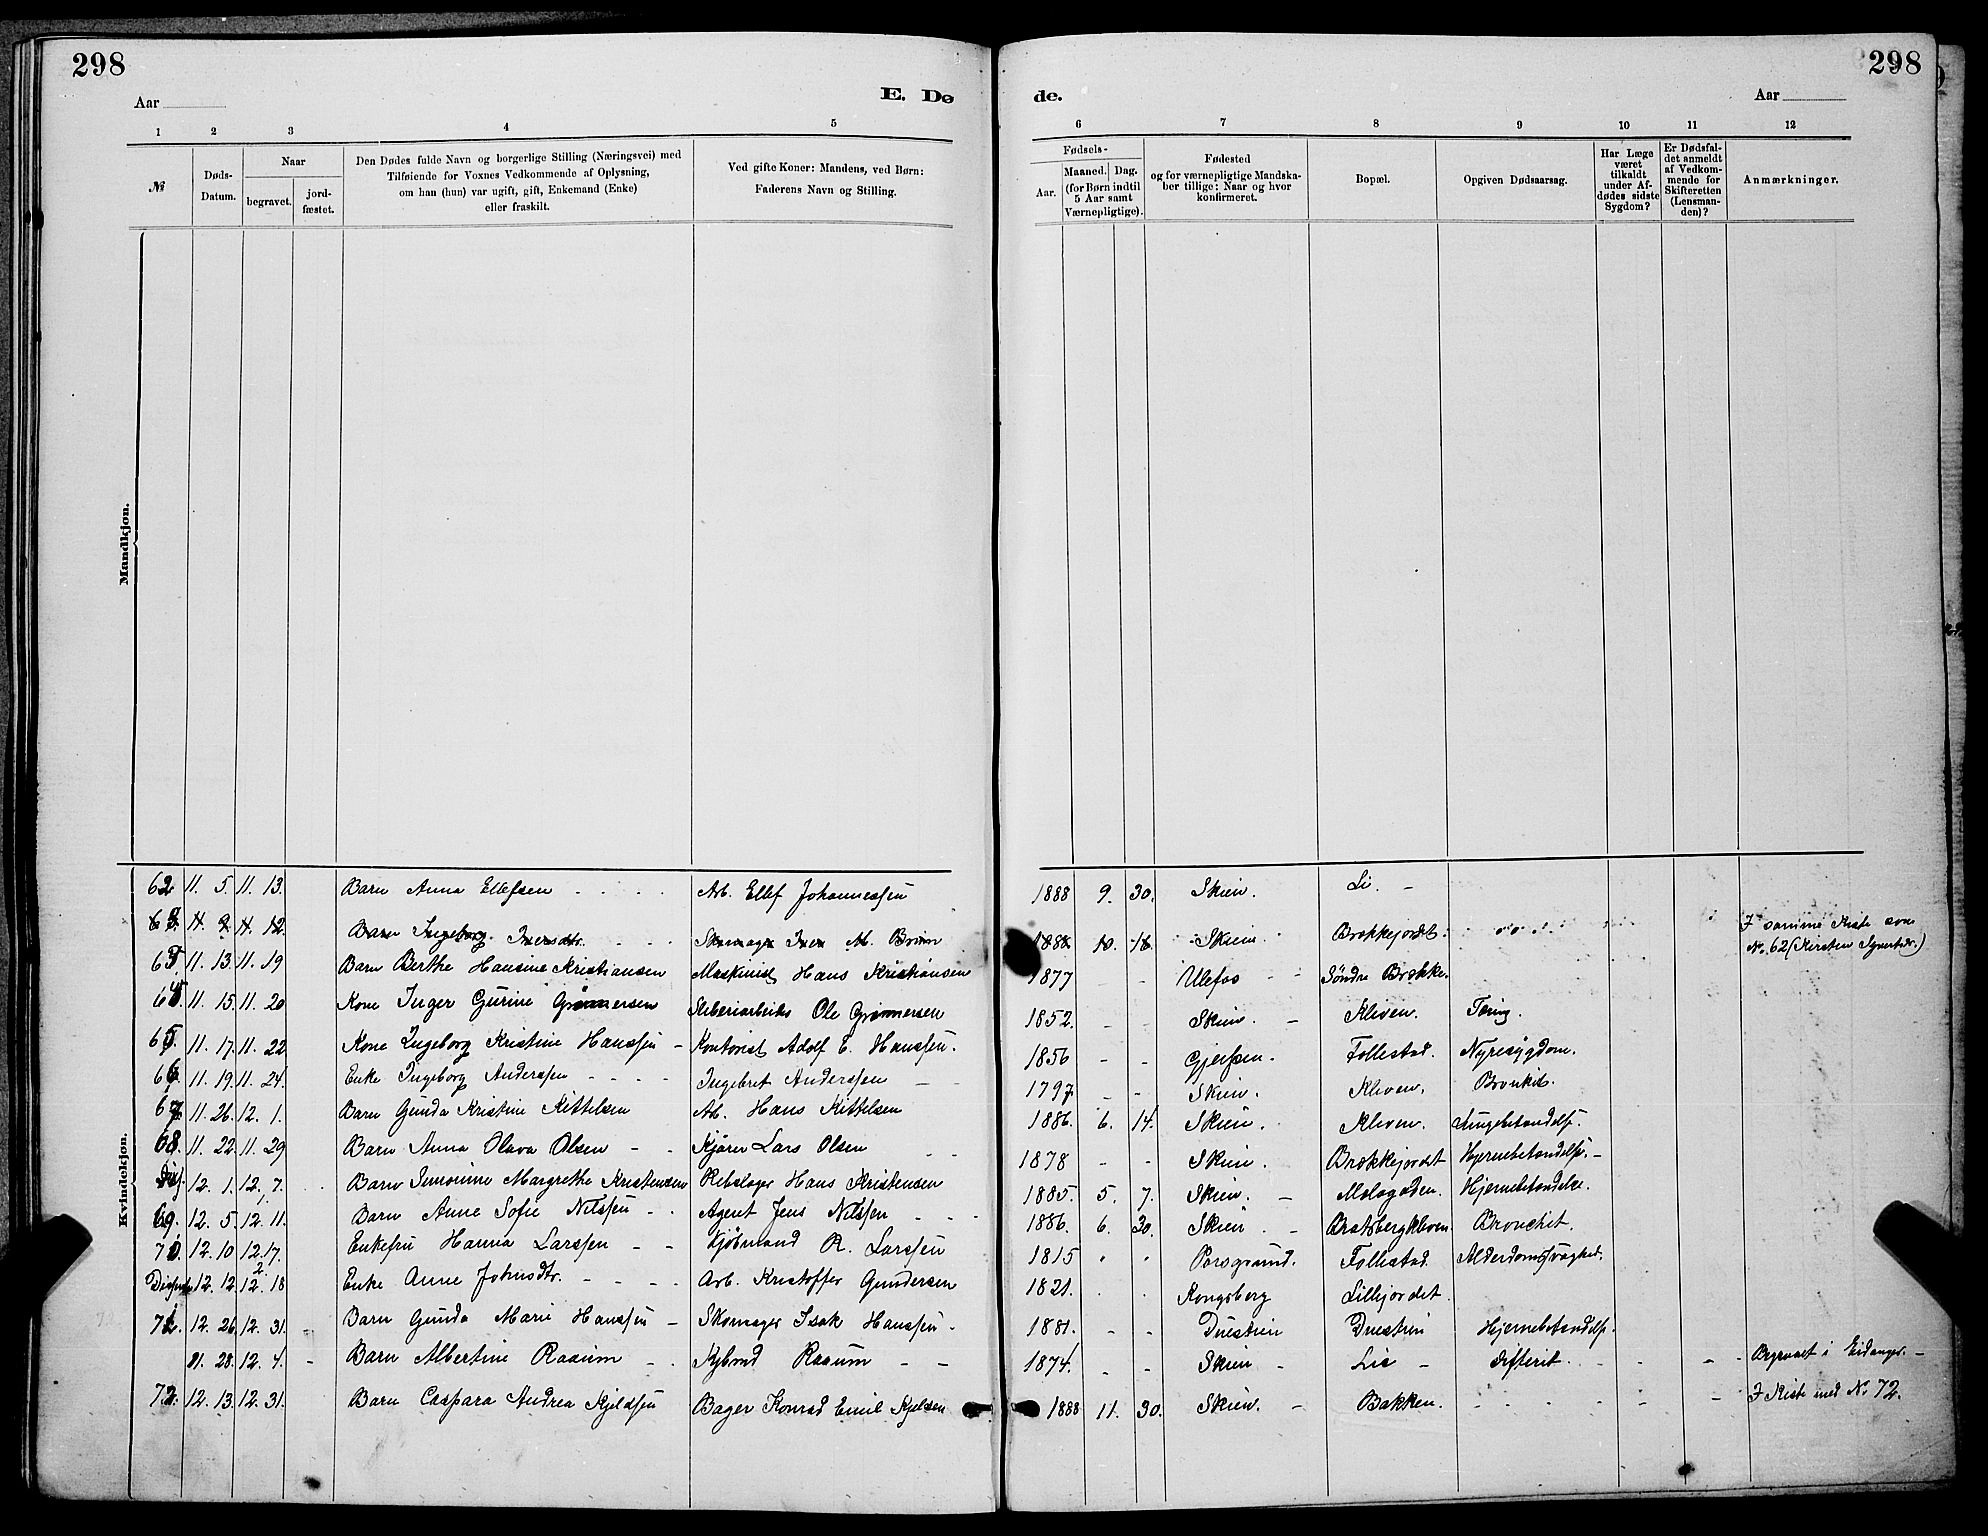 298
298
Aar
E. Dø
de.
Aar
1 2 3 4 5 6 7 8 9 10 11 12
№
Døds-Datum.
Naar
begravet.
jord-fæstet.
Den Dødes fulde Navn og borgerlige Stilling (Næringsvei) med
Tilføiende for Voxnes Vedkommende af Oplysning,
om han (hun) var ugift, gift, Enkemand (Enke)
eller fraskilt.
Ved gifte Koner: Mandens, ved Børn:
Faderens Navn og Stilling.
Fødsels-
Aar.
Maaned. Dag.
(for Børn indtil
5 Aar samt
Værnepligtige).
Fødested
og for værnepligtige Mandska-
ber tillige: Naar og hvor
konfirmeret.
Bopæl.
Opgiven Dødsaarsag.
Har Læge
været
tilkaldt
under Af-
dødes sidste
Sygdom?
Er Dødsfal-
det anmeldt
af Vedkom-
mende for
Skifteretten
(Lensman-
den)?
Anmærkninger.
Mandkjøn.
Kvindekjøn.
62 11. 5. 11. 13. Barn Anna Ellefsen Arb. Ellef Johannessen 1888 9. 30. Skien. Li.
11. 9. 11. 12. Barn Ingeborg Iversdtr. Skomager Iver M. Brinn 1888. 10. 16. Skien. Brokkejordet. I samme Kiste som
No. 62 (Kirsten
11. 13. 11. 19 Barn Berthe Hansine Kristiansen Maskinist Hans Kristiansen 1877 Ulefos Søndre Brokke.
11. 15. 11. 20 Kone Inger Gurine Grønnersen Sliberiarbeider Ole Grønnersen 1852. Skien. Kleven. Tæring.
11. 17. 11. 22 Kone Ingeborg Kristine Hanssen Kontorist Adolf E. Hanssen. 1856 Gjerpen. Follestad. Nyresygdom.
66. 11. 19. 11. 24. Enke Ingeborg Anderssen Ingebret Anderssen 1797 Skien. Kleven. Bronkit.
67 11. 26. 12. 1. Barn Gunda Kristine Kittelsen Arb. Hans Kittelsen 1886. 6. 14. Skien. Kleven. Lungebetændelse.
68. 11. 22. 11. 29 Barn Anna Olava Olsen Kjører Lars Olsen 1878 Skien. Brokkejordet Hjernebetændelse.
12. 1. 12. 7. Barn Margrethe Kristensen Rebslager Hans Kristensen 1885. 5. 7. Skien. Hjernebetændelse.
69. 12. 5. 12. 11. Barn Anne Sofie Nilssen Agent Jens Nilssen 1886. 6. 30. Skien Bratsbergkleven Bronchit.
70. 12. 10 12. 17. Enkefru Hanna Larssen Kjøbmand R. Larssen 1815 Porsgrund. Follestad. Alderdomssvaghed.
12. 12 12. 18 Enke Anne Johnsdtr. Arb. Kristoffer Gundersen 1821. Kongsberg Lillejordet.
71. 12. 26. 12. 31. Barn Gunda Marie Hanssen Skomager Isak Hanssen. 1881. Duestien Duestien Hjernebetændelse.
28. 12. 4. Barn Albertine Raaum Raaum 1874. Skien Lie difterit. Begravet i Eidanger.
72. 12. 13. 12. 31. Barn Caspara Andrea Kjeldsen Bager Konrad Emil Kjelsen 1888 11. 30. Skien. Bakken. I Kiste med No. 72.